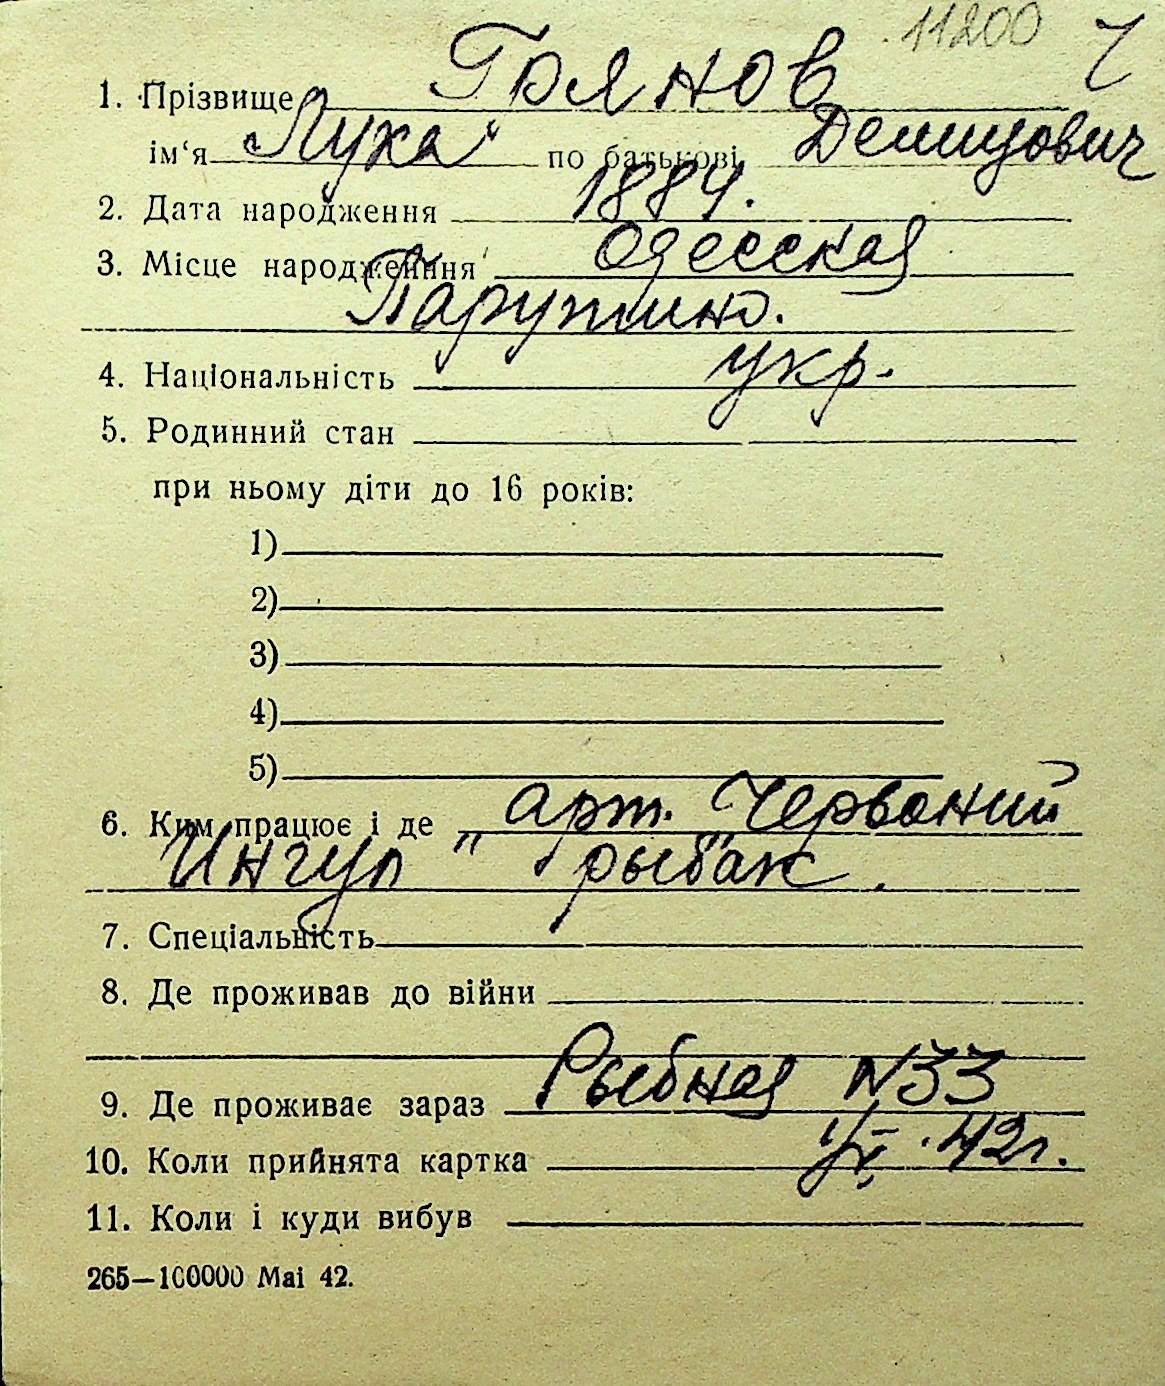 11200
1. Прізвище Гоянов
ім‘я Лука по батькові Демидович
2. Дата народження 1884.
3. Місце народження Одесская
Парутино.
4. Національність укр.
5. Родинний стан
при ньому діти до 16 років:
1)
2)
3)
4)
5)
6. Ким працює і де арт. Червоний
Ингул" рыбак.
7. Спеціальність
8. Де проживав до війни
9. Де проживає зараз Рыбная №33
10. Коли прийнята картка 42г.
11. Коли і куди вибув
265—100000 Mai 42.